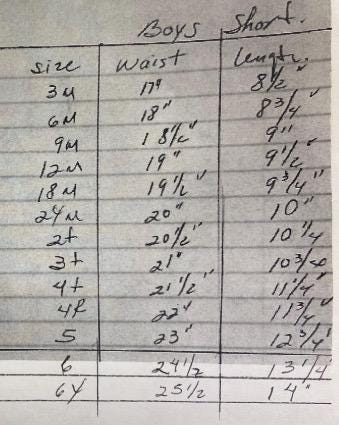 Boys Short.
size Waist length.
3M 17" 8 1/2"
6M 18" 8 3/4"
9M 18 1/2" 9"
12M 19" 9 1/2"
18M 19 1/2" 9 3/4"
24M 20" 10"
2t 20 1/2" 10 1/4
3t 21" 10 3/4
4t 21 1/2" 11 1/4"
22" 11 3/4"
5 23" 12 3/4"
6 24 1/2 13 1/4
25 1/2 14"